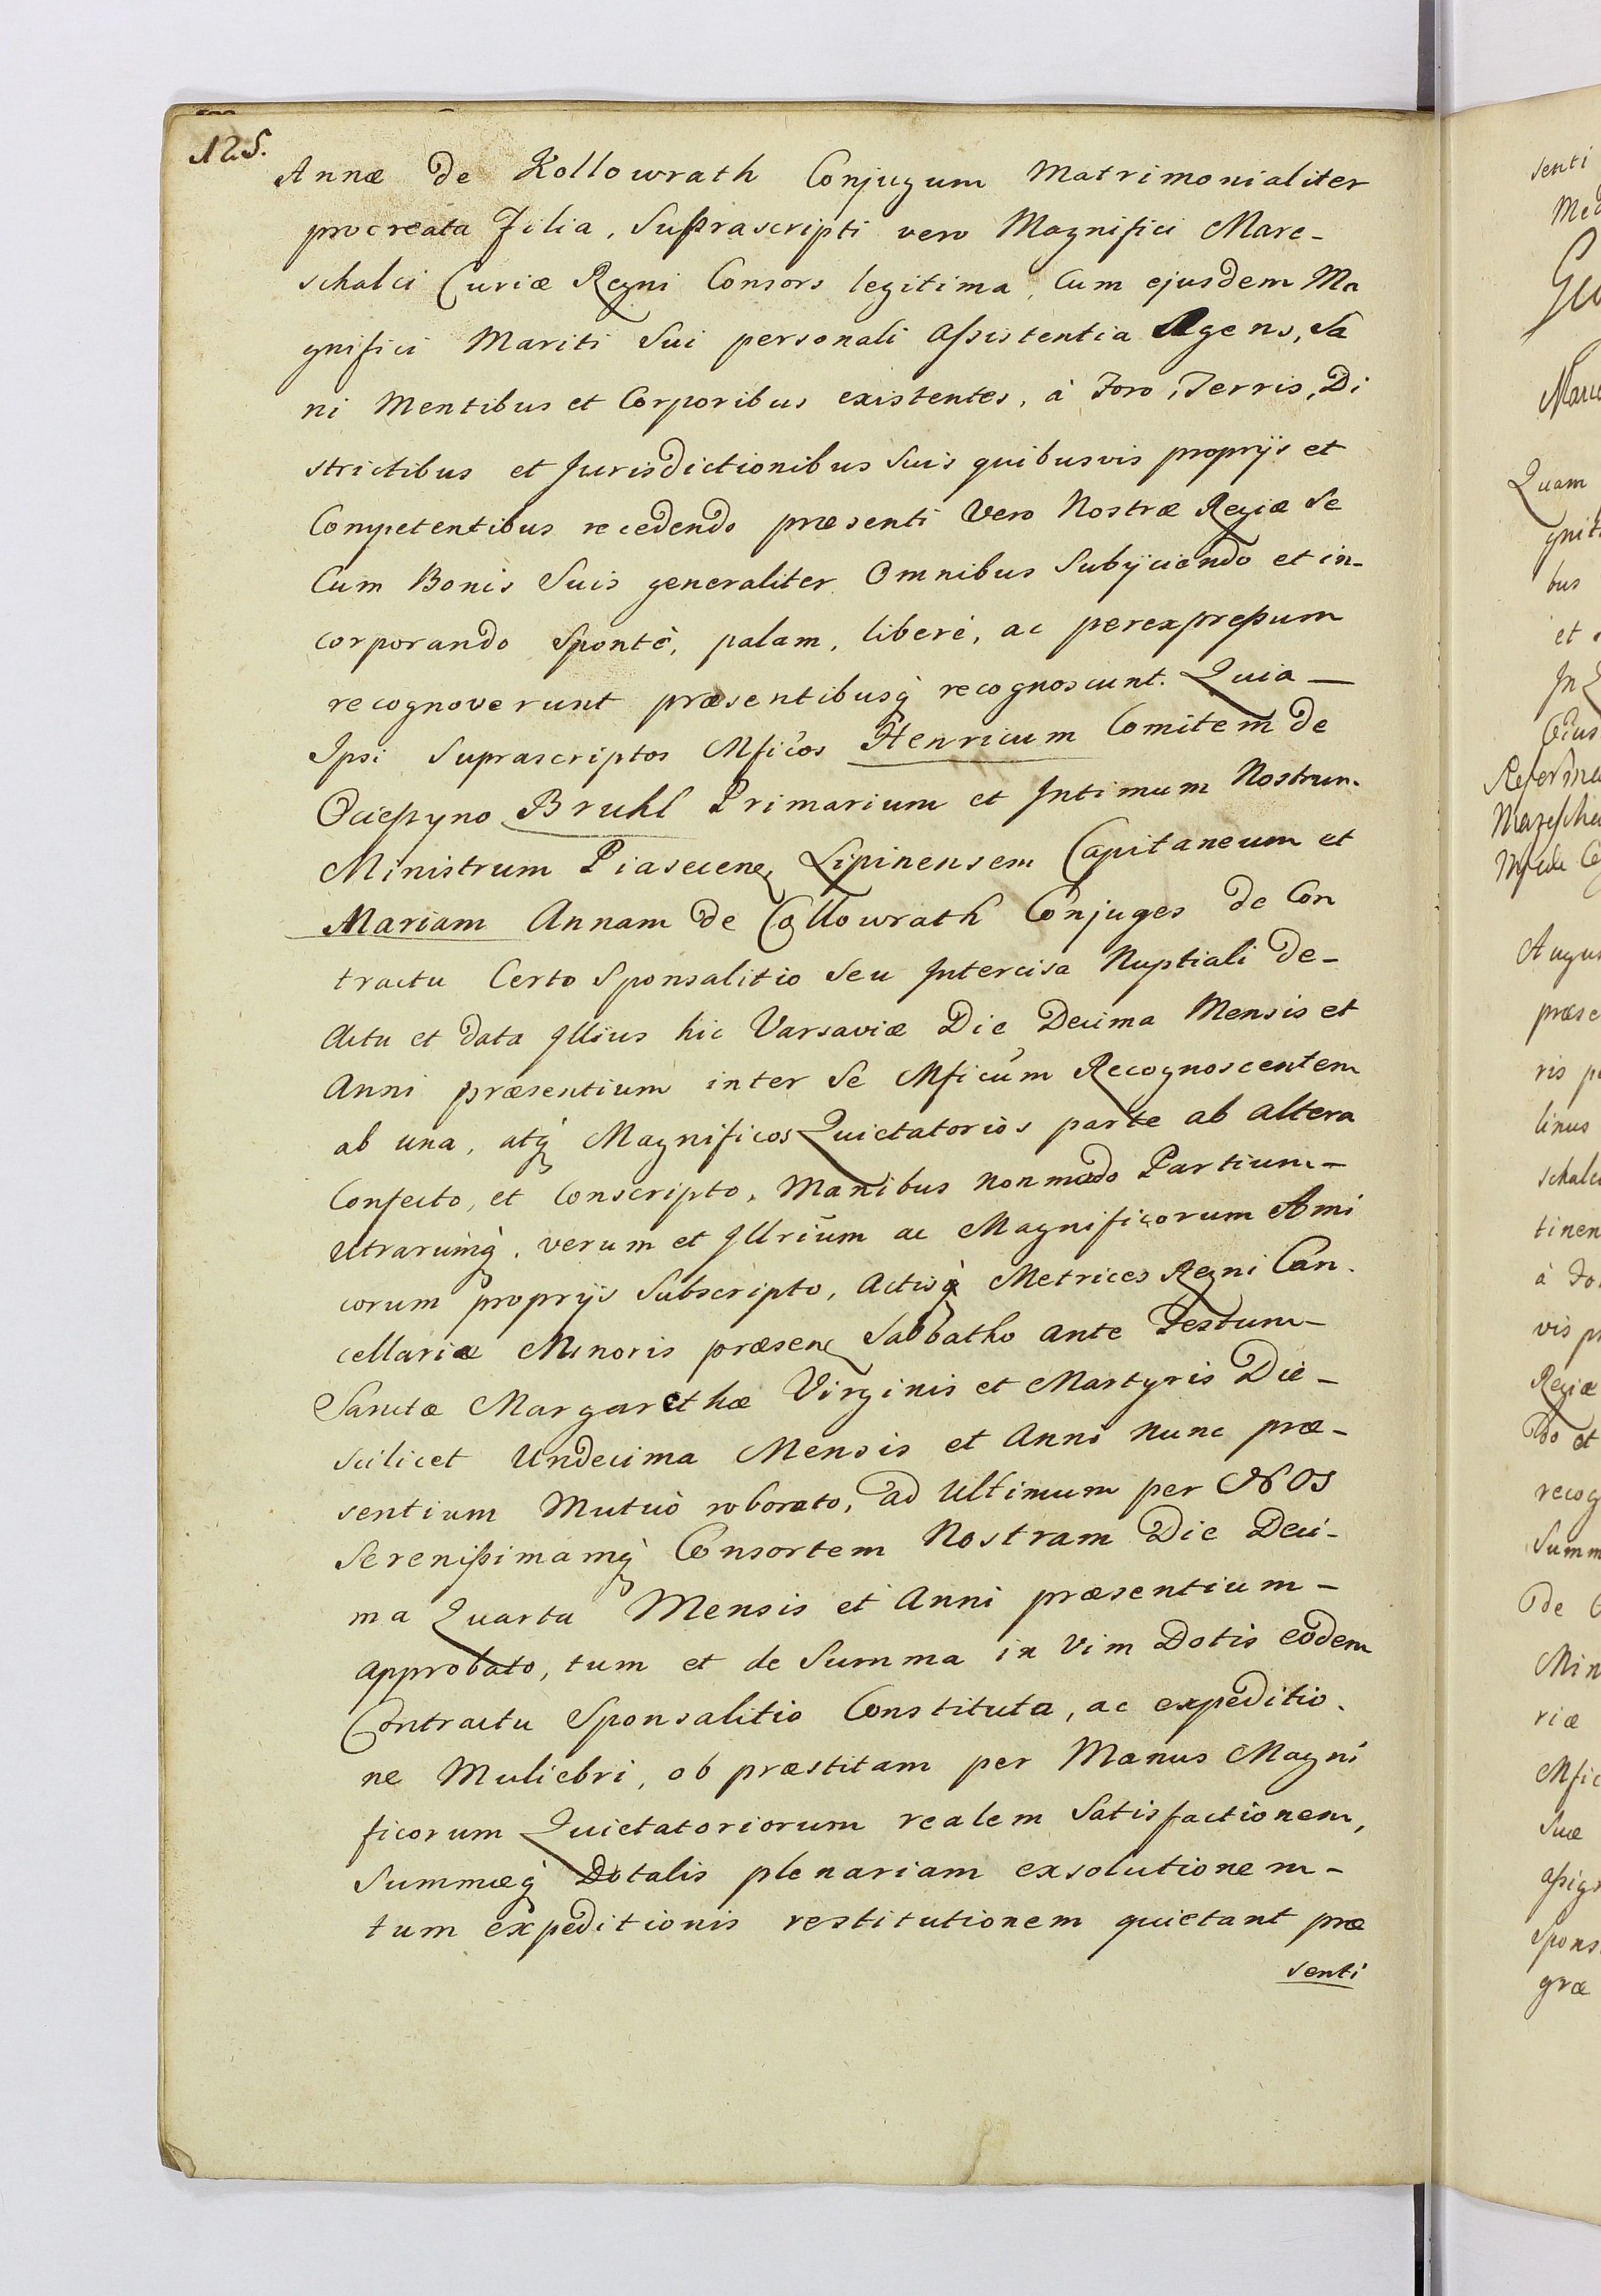 125.
Annæ de Kollowrath Conjugum Matrimonialiter
procreata Filia, Suprascripti vero Magnifici Mare-
schalci Curiæ Regni Consors legitima, Cum ejusdem Ma
gnifici Mariti Sui personali Assistentia Agens, Sa
ni Mentibus et Corporibus existentes, à Foro, Terris, Di
strictibus et Jurisdictionibus Suis quibusvis proprijs et
Competentibus recedendo præsenti Vero Nostræ Regiæ Se
Cum Bonis Suis generaliter Omnibus Subijciendo et in-
corporando Spontè, palam, liberè, ac perexpressum
recognoverunt præsentibusq recognoscunt. Quia —
Ipsi Suprascriptos Mficos Henricum Comitem de
Ocieszyno Bruhl Primarium et Intimum Nostrum
Ministrum Piasecen, Lipinensem Capitaneum et
Mariam Annam de Collowrath Conjuges de Con
tractu Certo Sponsalitio Seu Intercisa Nuptiali de-
Actu et data Illius hic Varsaviæ Die Decima Mensis et
Anni præsentium inter Se Mficum Recognoscentem
ab una, atq Magnificos Quietatorios parte ab altera
Confecto, et Conscripto, Manibus non modo Partium-
Utrarumq, verum et Illrium ac Magnificorum Ami
corum proprijs Subscripto, Actisq Metrices Regni Can-
cellariæ Minoris præsen Sabbatho ante Festum-
Sanctæ Margarethæ Virginis et Martyris Die-
scilicet Undecima Mensis et Anni nunc præ-
sentium Mutuò roborato, ad Ultimum per NOS
Serenissimamq Consortem Nostram Die Deci-
ma Quarta Mensis et Anni præsentium-
approbato, tum et de Summa in Vim Dotis eodem
Contractu Sponsalitio Constituta, ac expeditio-
ne Muliebri, ob præstitam per Manus Magni
ficorum Quietatoriorum realem Satisfactionem,
Summæq Dotalis plenariam exsolutionem-
tum expeditionis restitutionem quietant præ
senti